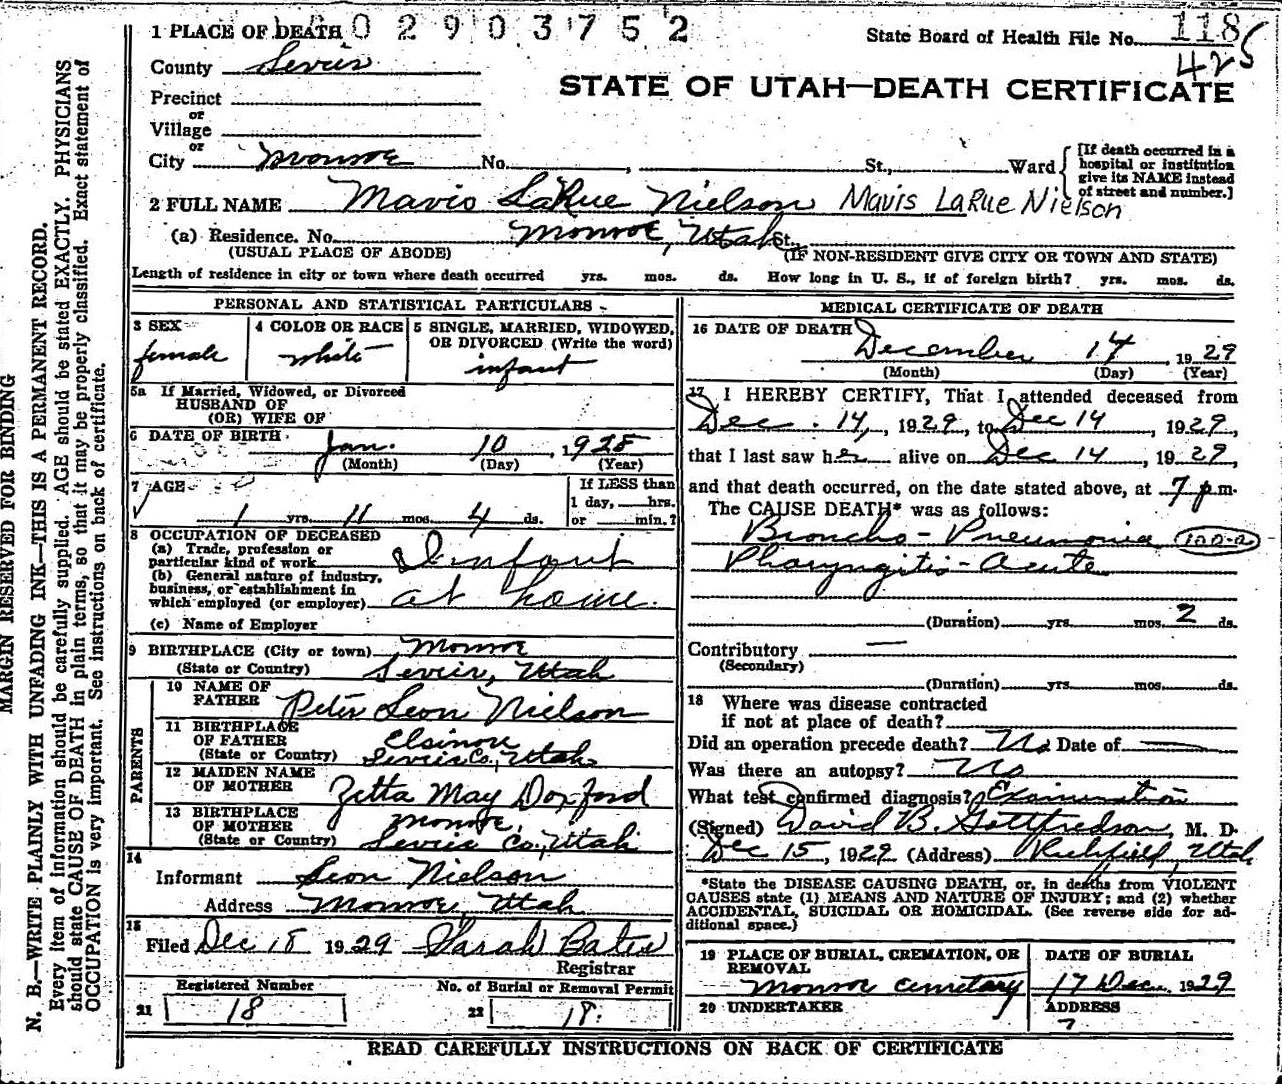 1 PLACE OF DEATH 0 2 9 0 3 7 5 2
State Board of Health File No. 118
425
County Sevier
STATE OF UTAH—DEATH CERTIFICATE
Precinct
or
Village
or
City Monroe No. , St., Ward
[If death occurred in a
hospital or institution
give its NAME instead
of street and number.]
2 FULL NAME Mavis LaRue Nielson Mavis LaRue Nielson
(a) Residence. No. Monroe, Utah St.,
(USUAL PLACE OF ABODE) (IF NON-RESIDENT GIVE CITY OR TOWN AND STATE)
Length of residence in city or town where death occurred yrs. mos. ds. How long in U. S., if of foreign birth? yrs. mos. ds.
PERSONAL AND STATISTICAL PARTICULARS
3 SEX
female
4 COLOR OR RACE
white
5 SINGLE, MARRIED, WIDOWED,
OR DIVORCED (Write the word)
infant
5a If Married, Widowed, or Divorced
HUSBAND OF
(OR) WIFE OF
6 DATE OF BIRTH Jan. 10, 1928
(Month) (Day) (Year)
7 AGE
1 yrs. 11 mos. 4 ds.
If LESS than
1 day, hrs.
or min.?
8 OCCUPATION OF DECEASED
(a) Trade, profession or
particular kind of work Infant
(b) General nature of industry,
business, or establishment in
which employed (or employer) at home.
(c) Name of Employer
9 BIRTHPLACE (City or town) Monroe
(State or Country) Sevier, Utah
PARENTS
10 NAME OF
FATHER Peter Leon Nielson
11 BIRTHPLACE
OF FATHER Elsinore
(State or Country) Sevier Co., Utah
12 MAIDEN NAME
OF MOTHER Zetta May Doxford
13 BIRTHPLACE
OF MOTHER Monroe,
(State or Country) Sevier Co., Utah
14
Informant Leon Nielson
Address Monroe, Utah
15
Filed Dec 18 1929 Sarah Bates
Registrar
Registered Number
21 18
No. of Burial or Removal Permit
22 18.
MEDICAL CERTIFICATE OF DEATH
16 DATE OF DEATH December 14, 1929
(Month) (Day) (Year)
17 I HEREBY CERTIFY, That I attended deceased from
Dec. 14, 1929, to Dec 14 1929,
that I last saw her alive on Dec 14, 1929,
and that death occurred, on the date stated above, at 7 p.m.
The CAUSE DEATH* was as follows:
Broncho-Pneumonia 100-a
Pharyngitis-Acute
(Duration) yrs. mos. 2 ds.
Contributory —
(Secondary)
(Duration) yrs. mos. ds.
18 Where was disease contracted
if not at place of death?
Did an operation precede death? No Date of
Was there an autopsy? No
What test confirmed diagnosis? Examination
(Signed) David B. Gottfredson, M. D.
Dec 15, 1929 (Address) Richfield, Utah
*State the DISEASE CAUSING DEATH, or, in deaths from VIOLENT
CAUSES state (1) MEANS AND NATURE OF INJURY; and (2) whether
ACCIDENTAL, SUICIDAL OR HOMICIDAL. (See reverse side for ad-
ditional space.)
19 PLACE OF BURIAL, CREMATION, OR
REMOVAL
Monroe cemetary
DATE OF BURIAL
17 Dec. 1929
20 UNDERTAKER
ADDRESS
READ CAREFULLY INSTRUCTIONS ON BACK OF CERTIFICATE
MARGIN RESERVED FOR BINDING
N. B.—WRITE PLAINLY WITH UNFADING INK—THIS IS A PERMANENT RECORD.
Every item of information should be carefully supplied. AGE should be stated EXACTLY. PHYSICIANS
should state CAUSE OF DEATH in plain terms, so that it may be properly classified. Exact statement of
OCCUPATION is very important. See instructions on back of certificate.